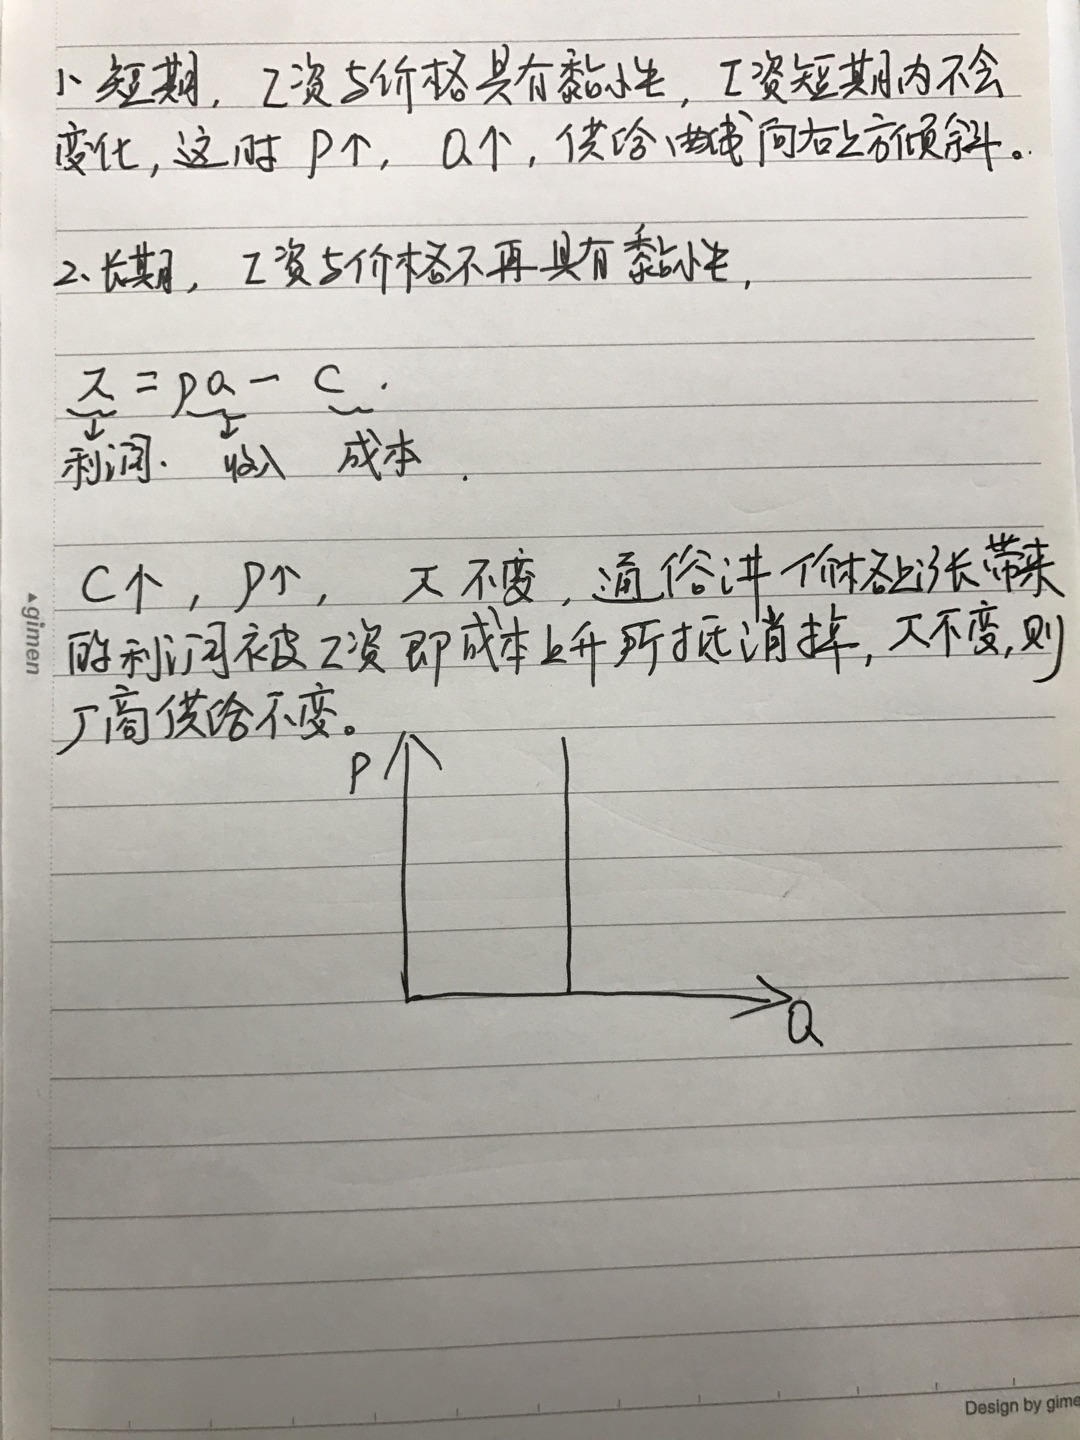 1、短期，工资与价格具有黏性，工资短期内不会
变化，这时 P↑， Q↑，供给曲线向右上方倾斜。
2、长期，工资与价格不再具有黏性，
π = PQ - C .
利润. 收入 成本 .
C↑，P↑， π 不变，通俗讲价格上涨带来
的利润被工资即成本上升所抵消掉，π不变，则
厂商供给不变。
P
Q
gimen
Design by gime